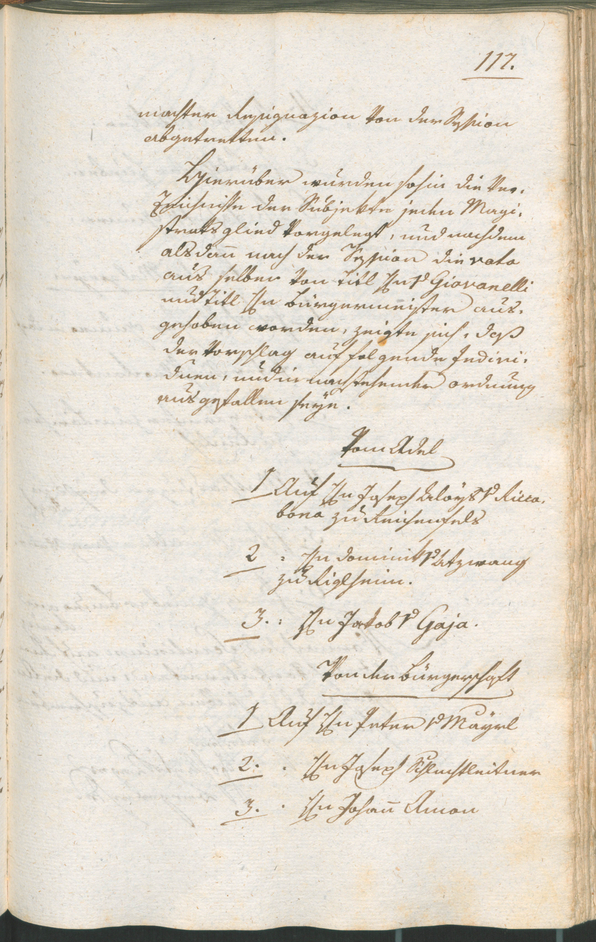 117.
machter Resignazion von der Session
abgetretten.
Hierüber wurden sohin die Ver„
zeichnisse der Subjekte jeden Magi„
stratsglied vorgelegt, und nachdem
alsdann nach der Session die vota
aus selber von Titl Hn v Giovanelli
und Titl Hn Bürgermeister aus„
gehoben worden, zeigte sich, daß
der Vorschlag auf folgende Indivi„
duen, und in nachstehender Ordnung
ausgefallen seye.
Vom Adel
1 Auf Hn Joseph Aloys v Ricca„
bona zu Reichenfels
2 „ Hn Dominik v Atzwang
zu
3. „ Hn Jakob v Gaja.
Von der Bürgerschaft
1 Auf Hn Peter v Mayrl
2. „ Hn Joseph Schluchtleitner
3. „ Hn Johann Amon